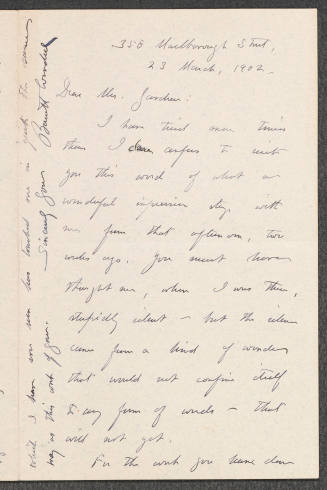 358 Marlborough Street,
23 March, 1902.
Dear Mrs. Gardner:
I have tried more times
than I dare confess to write
you this word of what a
wonderful impression stays with
me from that afternoon, two
weeks ago. You must have
thought me, when I was there,
stupidly silent – but the silence
came from a kind of wonder
that would not confine itself
to any form of words – that
will not yet.
For the work you have done
which I have ever seen has touched me in quite the same
way as this work of yours.
Sincerely yours
Barrett Wendell